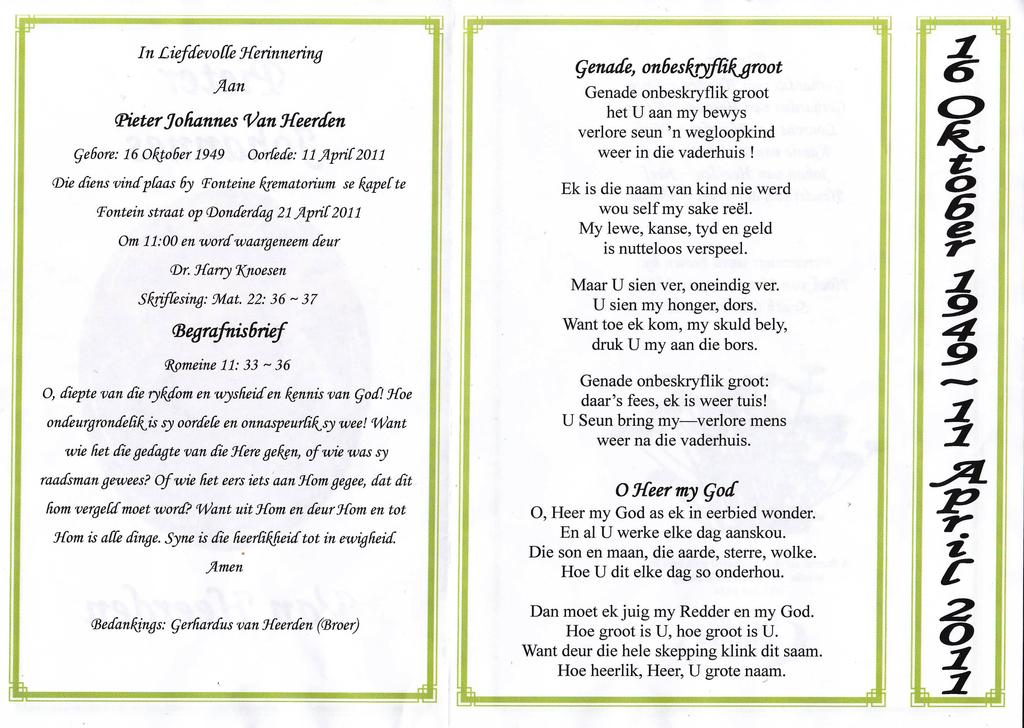 In Liefdevolle Herinnering
Aan
Pieter Johannes Van Heerden
Gebore: 16 Oktober 1949 Oorlede: 11 April 2011
Die diens vind plaas by Fonteine krematorium se kapel te
Fontein straat op Donderdag 21 April 2011
Om 11:00 en word waargeneem deur
Dr. Harry Knoesen
Skriflesing: Mat. 22: 36 ~ 37
Begrafnisbrief
Romeine 11: 33 ~ 36
O, diepte van die rykdom en wysheid en kennis van God! Hoe
ondeurgrondelik is sy oordele en onnaspeurlik sy wee! Want
wie het die gedagte van die Here geken, of wie was sy
raadsman gewees? Of wie het eers iets aan Hom gegee, dat dit
hom vergeld moet word? Want uit Hom en deur Hom en tot
Hom is alle dinge. Syne is die heerlikheid tot in ewigheid.
Amen
Bedankings: Gerhardus van Heerden (Broer)
Genade, onbeskryflik groot
Genade onbeskryflik groot
het U aan my bewys
verlore seun 'n wegloopkind
weer in die vaderhuis !
Ek is die naam van kind nie werd
wou self my sake reël.
My lewe, kanse, tyd en geld
is nutteloos verspeel.
Maar U sien ver, oneindig ver.
U sien my honger, dors.
Want toe ek kom, my skuld bely,
druk U my aan die bors.
Genade onbeskryflik groot:
daar's fees, ek is weer tuis!
U Seun bring my—verlore mens
weer na die vaderhuis.
O Heer my God
O, Heer my God as ek in eerbied wonder.
En al U werke elke dag aanskou.
Die son en maan, die aarde, sterre, wolke.
Hoe U dit elke dag so onderhou.
Dan moet ek juig my Redder en my God.
Hoe groot is U, hoe groot is U.
Want deur die hele skepping klink dit saam.
Hoe heerlik, Heer, U grote naam.
16 Oktober 1949 ~ 11 April 2011